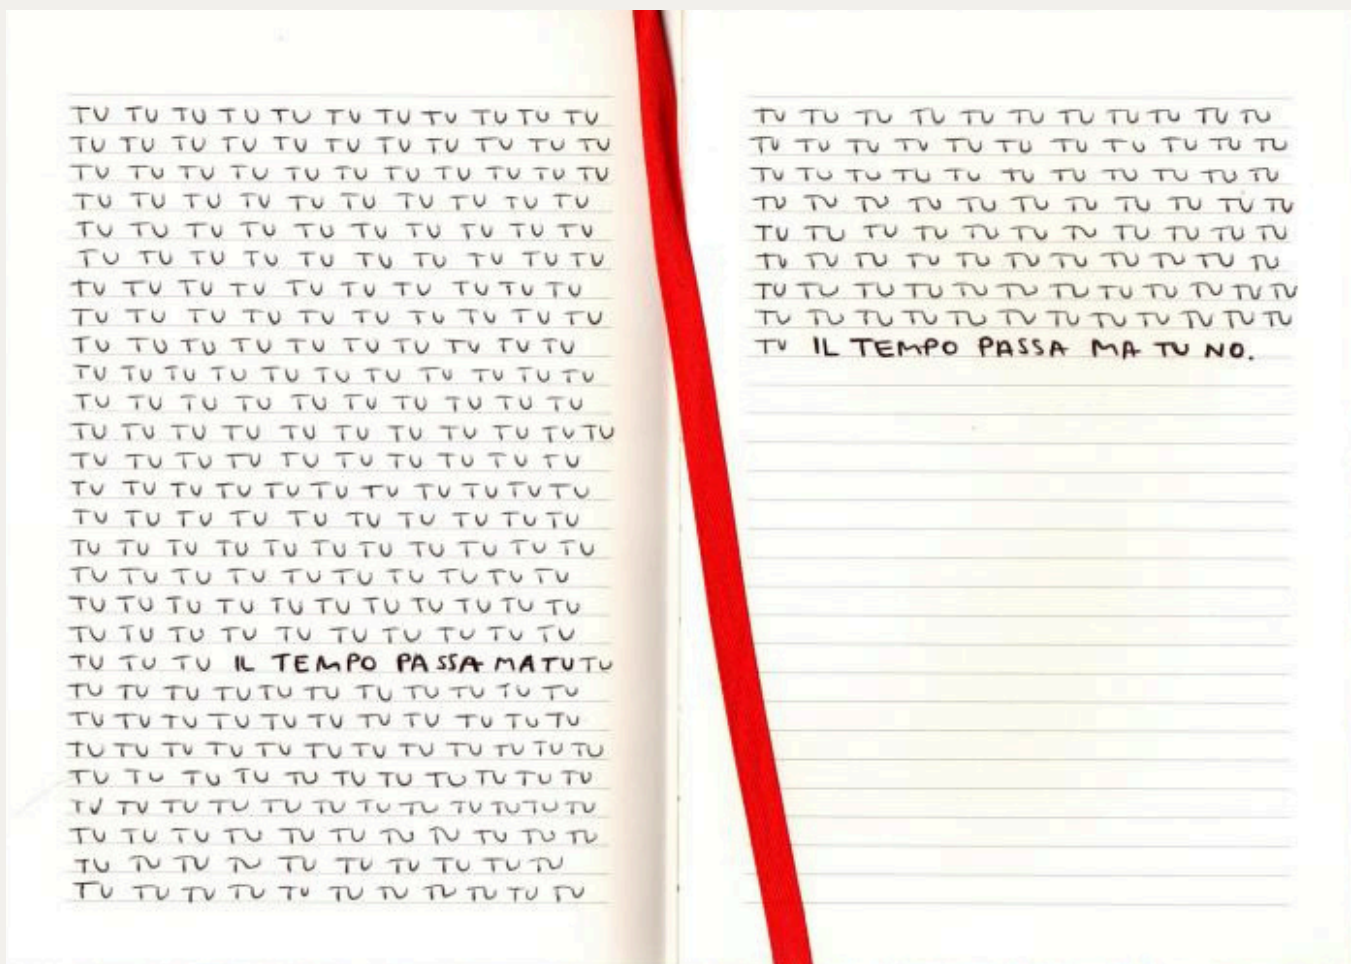 TU TU TU TU TU TU TU TU TU TU TU
TU TU TU TU TU TU TU TU TU TU TU
TU TU TU TU TU TU TU TU TU TU TU
TU TU TU TU TU TU TU TU TU TU
TU TU TU TU TU TU TU TU TU TU
TU TU TU TU TU TU TU TU TU TU
TU TU TU TU TU TU TU TU TU TU
TU TU TU TU TU TU TU TU TU TU
TU TU TU TU TU TU TU TU TU TU
TU TU TU TU TU TU TU TU TU TU TU
TU TU TU TU TU TU TU TU TU TU
TU TU TU TU TU TU TU TU TU TU TU
TU TU TU TU TU TU TU TU TU TU
TU TU TU TU TU TU TU TU TU TU TU
TU TU TU TU TU TU TU TU TU TU
TU TU TU TU TU TU TU TU TU TU TU
TU TU TU TU TU TU TU TU TU TU
TU TU TU TU TU TU TU TU TU TU TU
TU TU TU TU TU TU TU TU TU TU
TU TU TU IL TEMPO PASSA MA TU TU
TU TU TU TU TU TU TU TU TU TU TU
TU TU TU TU TU TU TU TU TU TU TU
TU TU TU TU TU TU TU TU TU TU TU TU
TU TU TU TU TU TU TU TU TU TU TU
TU TU TU TU TU TU TU TU TU TU TU TU
TU TU TU TU TU TU TU TU TU TU TU
TU TU TU TU TU TU TU TU TU TU
TU TU TU TU TU TU TU TU TU TU TU
TU TU TU TU TU TU TU TU TU TU TU
TU TU TU TU TU TU TU TU TU TU TU
TU TU TU TU TU TU TU TU TU TU TU
TU TU TU TU TU TU TU TU TU TU TU
TU TU TU TU TU TU TU TU TU TU TU
TU TU TU TU TU TU TU TU TU TU TU
TU TU TU TU TU TU TU TU TU TU TU TU
TU TU TU TU TU TU TU TU TU TU TU TU
TU IL TEMPO PASSA MA TU NO.